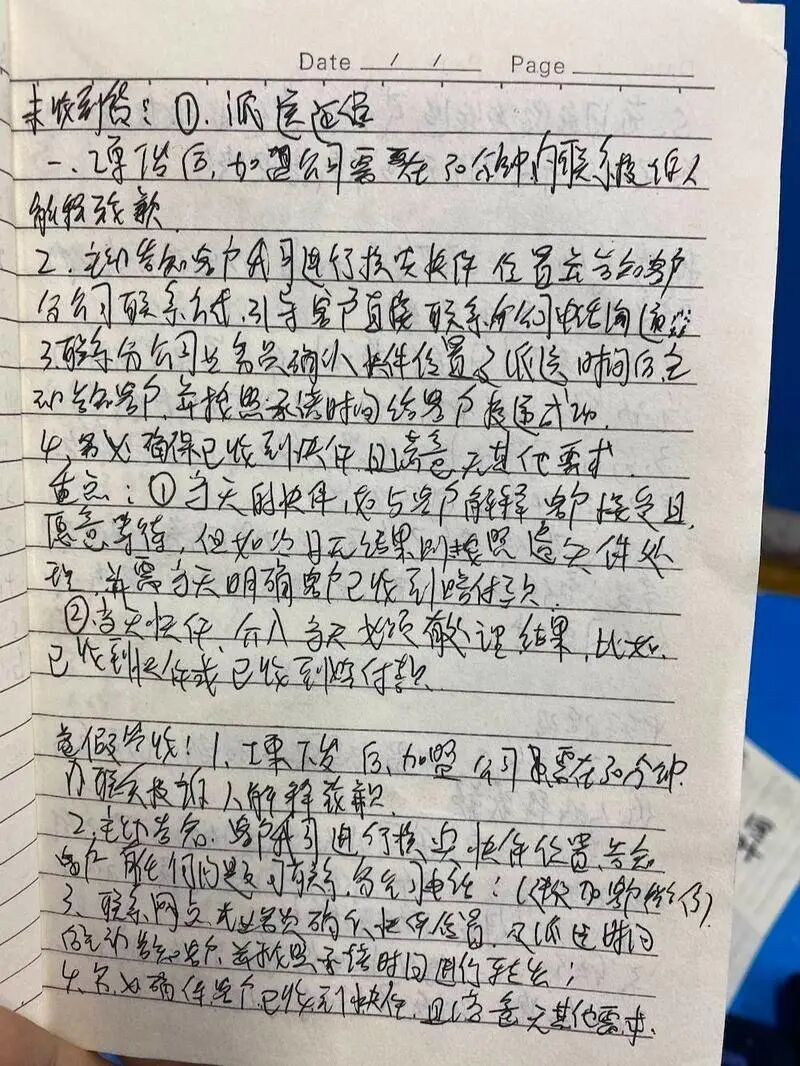 Date / / Page
未收到货:①.派送延误
一、工单下发后,加盟公司需要在30分钟内联系投诉人
解释致歉
2.主动告知客户我司进行核实快件位置并告知客户
分公司联系方式,引导客户直接联系分公司电话沟通
3.联系分公司业务员确认快件位置及派送时间后,主
动告知客户,并按照承诺时间给客户投递成功.
4.务必确保已收到快件且满意无其他需求.
重点:①当天的快件,如与客户解释客户接受且
愿意等待,但如次日无结果则按照遗失件处
理,并需当天明确客户已收到赔付款.
②.当天快件,介入当天必须有处理结果,比如.
已收到快件或已收到赔付款.
虚假签收!1、工单下发后,加盟公司需要在30分钟
内联系投诉人解释致歉.
2.主动告知.客户我司进行核实快件位置,告知
客户有任何问题可联系,分公司电话:
3、联系网点业务员确认快件位置,及派送时间
后主动告知客户,并按照承诺时间进行
4.务必确保客户已收到快件,且满意无其他需求.